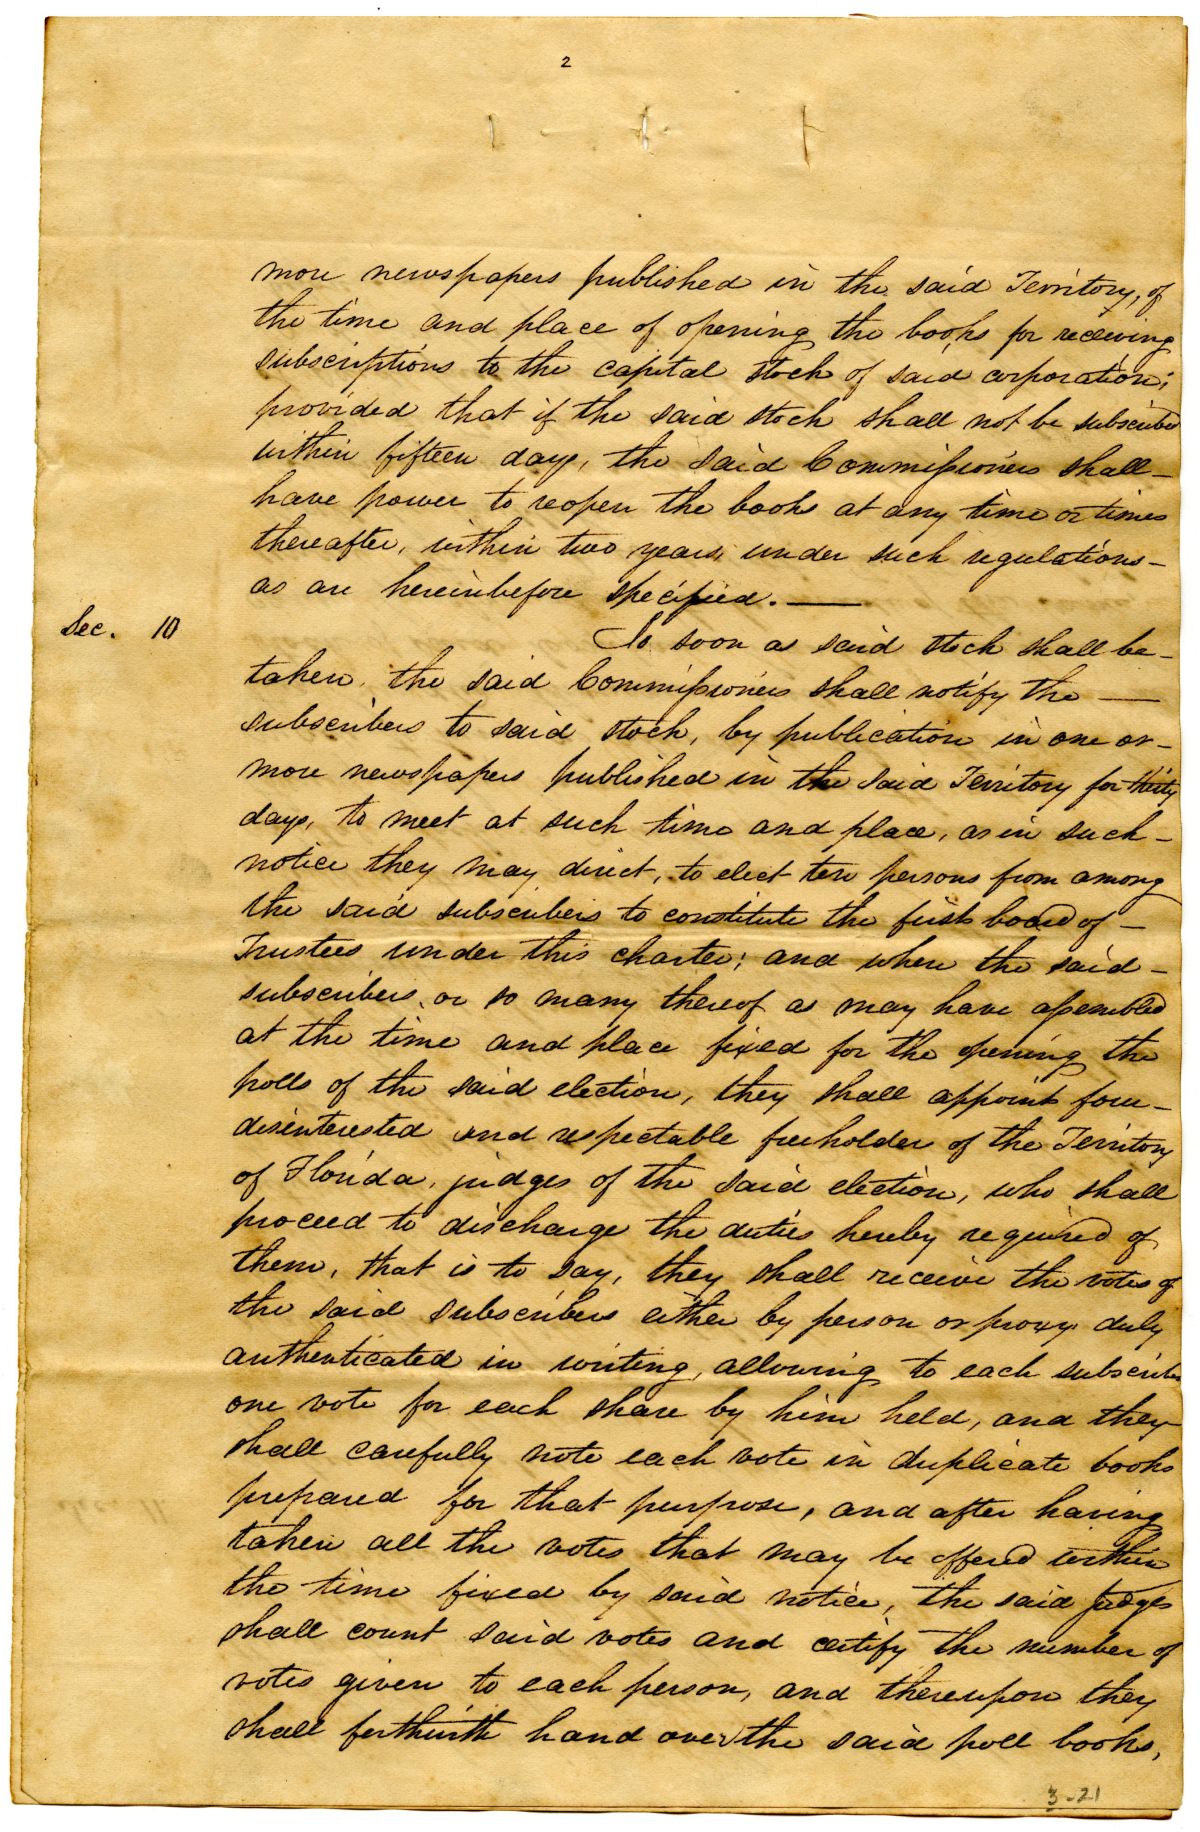 2
more newspapers published in the said Territory, of
the time and place of opening the books for receiving
subscriptions to the capital stock of said corporation;
provided that if the said stock shall not be subscribed
within fifteen days, the said Commissioners shall –
have power to reopen the books at any time or times
thereafter, within two years, under such regulations –
as are hereinbefore specified. —
Sec. 10
So soon as said stock shall be –
taken, the said Commissioners shall notify the —
subscribers to said stock, by publication in one or –
more newspapers published in the said Territory for thirty
days, to meet at such time and place, as in such –
notice they may direct, to elect ten persons from among
the said subscribers to constitute the first board of –
Trustees under this charter; and when the said –
subscribers, or so many thereof as may have assembled
at the time and place fixed for the opening the
polls of the said election, they shall appoint four –
disinterested and respectable freeholder of the Territory
of Florida, judges of the said election, who shall
proceed to discharge the duties hereby required of
them, that is to say, they shall receive the votes of
the said subscribers either by person or proxy duly
authenticated in writing, allowing to each subscriber
one vote for each share by him held, and they
shall carefully note each vote in duplicate books
prepared for that purpose, and after having
taken all the votes that may be offered within
the time fixed by said notice, the said judges
shall count said votes and certify the number of
votes given to each person, and thereupon they
shall forthwith hand over the said poll books,
3-21